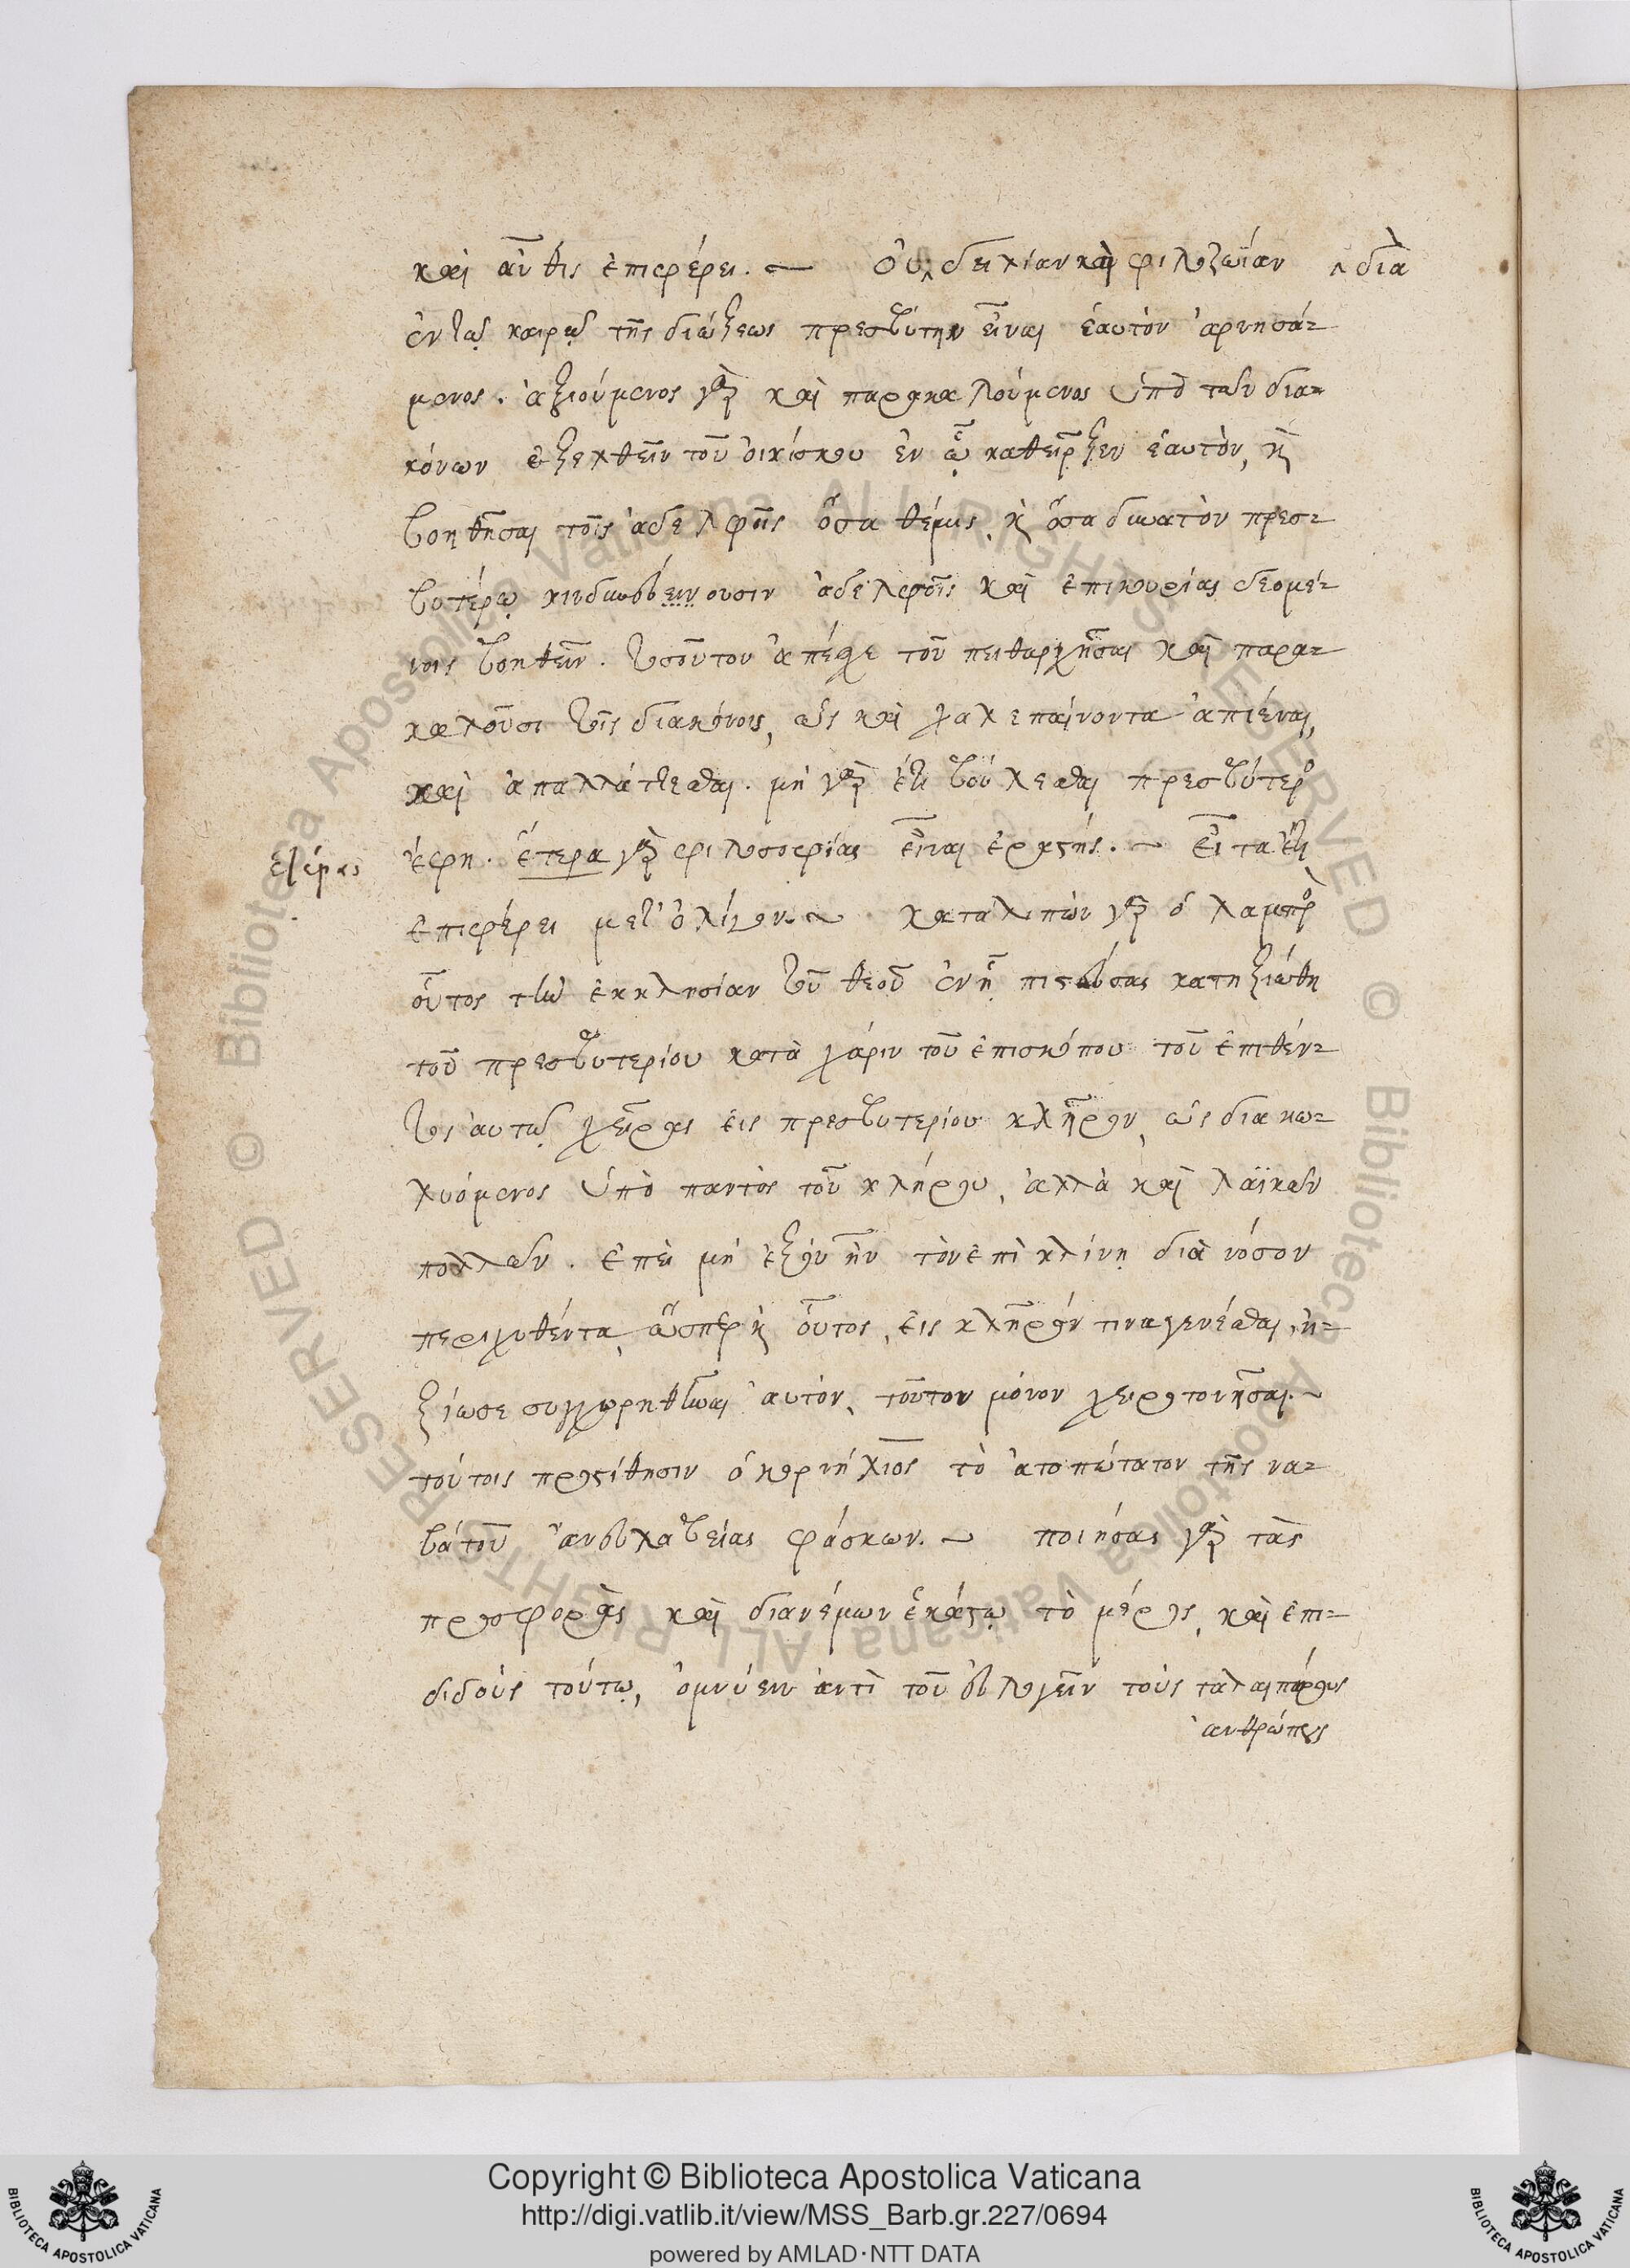 καὶ αὖθις ἐπιφέρει. ~ Οὐ ‸ δειλίαν καὶ φιλοζωΐαν ‸ διὰ
ἐν τῷ καιρῷ τῆς διώξεως πρεσβύτην εἶναι ἑαυτὸν ἀρνησά-
μενος. ἀξιούμενος γὰρ καὶ παρακαλούμενος ὑπὸ τῶν δια-
κόνων ἐξελθεῖν τοῦ οἰκίσκου ἐν ᾧ καθεῖρξεν ἑαυτὸν, κὶ
βοηθῆσαι τοῖς ἀδελφοῖς ὅσα θέμις, κὶ ὅσα δυνατὸν πρεσ-
βυτέρῳ κινδυνεύειν ουσιν ἀδελφοῖς καὶ ἐπικουρίας δεομέ-
νοις βοηθεῖν. τοσοῦτον ἀπέσχε τοῦ πειθαρχῆσαι καὶ παρα-
καλοῦσι τοῖς διακόνοις, ὡς καὶ χαλεπαίνοντα ἀπιέναι,
καὶ ἀπαλλάττεσθαι. μὴ γὰρ ἔτι βούλεσθαι πρεσβύτερο
ἔφη. ἕτερα γὰρ φιλοσοφίας εἶναι ἐραστής. ~ Εἶτα ἔτι
ἑτέρας
ἐπιφέρει μετ' ὀλίγον. ~ καταλιπὼν γὰρ ὁ λαμπρὸ
οὗτος τὴν ἐκκλησίαν τοῦ θεοῦ ἐν ᾗ πιστεύσας κατηξιώθη
τοῦ πρεσβυτερίου κατὰ χάριν τοῦ ἐπισκόπου τοῦ ἐπιθέν-
τος αὐτῷ χεῖρας εἰς πρεσβυτερίου κλῆρον, ὡς διακω-
λυόμενος ὑπὸ παντὸς τοῦ κλήρου, ἀλλὰ καὶ λαϊκῶν
πολλῶν. ἐπεὶ μὴ ἐξὸν ἦν τὸν ἐπὶ κλίνῃ διὰ νόσον
περιχυθέντα, ὥσπερ κὶ οὗτος, εἰς κλῆρόν τινα γενέσθαι, ἠ-
ξίωσε συγχωρηθῆναι αὐτὸν, τοῦτον μόνον χειροτονῆσαι. ~
τούτοις προστίθησιν ὁ κορνήλιος τὸ ἀτοπώτατον τῆς να-
βάτου ἀνευλαβείας φάσκων. ~ ποιήσας γὰρ τὰς
προσφορὰς καὶ διανέμων ἑκάστῳ τὸ μέρος, καὶ ἐπι-
διδοὺς τούτῳ, ὀμνύειν ἀντὶ τοῦ εὐλογεῖν τοὺς ταλαιπώρους
ἀνθρώπους
Copyright © Biblioteca Apostolica Vaticana
http://digi.vatlib.it/view/MSS_Barb.gr.227/0694
powered by AMLAD·NTT DATA
BIBLIOTECA APOSTOLICA VATICANA
BIBLIOTECA APOSTOLICA VATICANA
© Biblioteca Apostolica Vaticana ALL RIGHTS RESERVED © Biblioteca Apostolica Vaticana ALL RIGHTS RESERVED